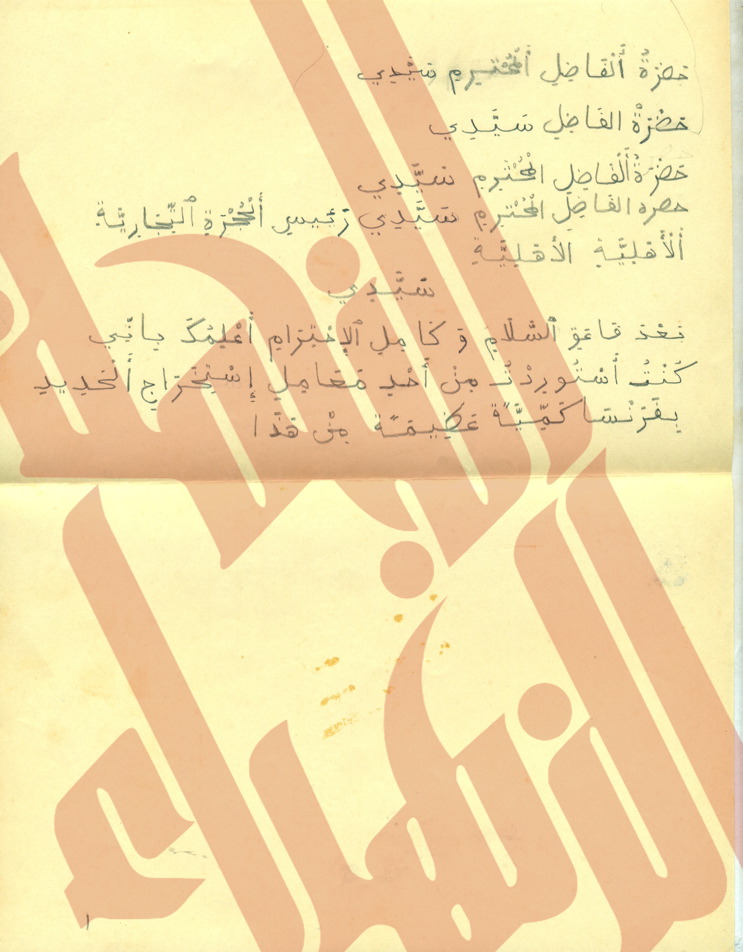 حضرةُ ألْفَاضِلِ ألْمُحْتَرِمِ سَيِّدِي
حَضْرَةُ الفَاضِلِ سَيِّدِي
حَضْرَةُ ألْفَاضِلِ الْمُحْتَرِمِ سَيِّدِي
حضرة الفاضِلِ الْمُحْتَرِمِ سَيِّدِي رَئِيسِ ألْحُجْرَةِ التِّجَارِيَّةِ
ألْأَهْلِيَّةِ الأَهْلِيَّةِ
سَيِّدِي
بَعْدَ فَائِقِ السَّلَامِ وَ كَامِلِ الإِحْتِرَامِ أُعْلِمُكَ بِأَنِّي
كُنْتُ أَسْتَوْرِدْتُ مِنْ أَحْدِ مَعَامِلِ إِسْتِخْرَاجِ ألْحَدِيدِ
بِفَرَنْسَا كَمِّيَّةً عَظِيمَةً مِنْ هَذَا